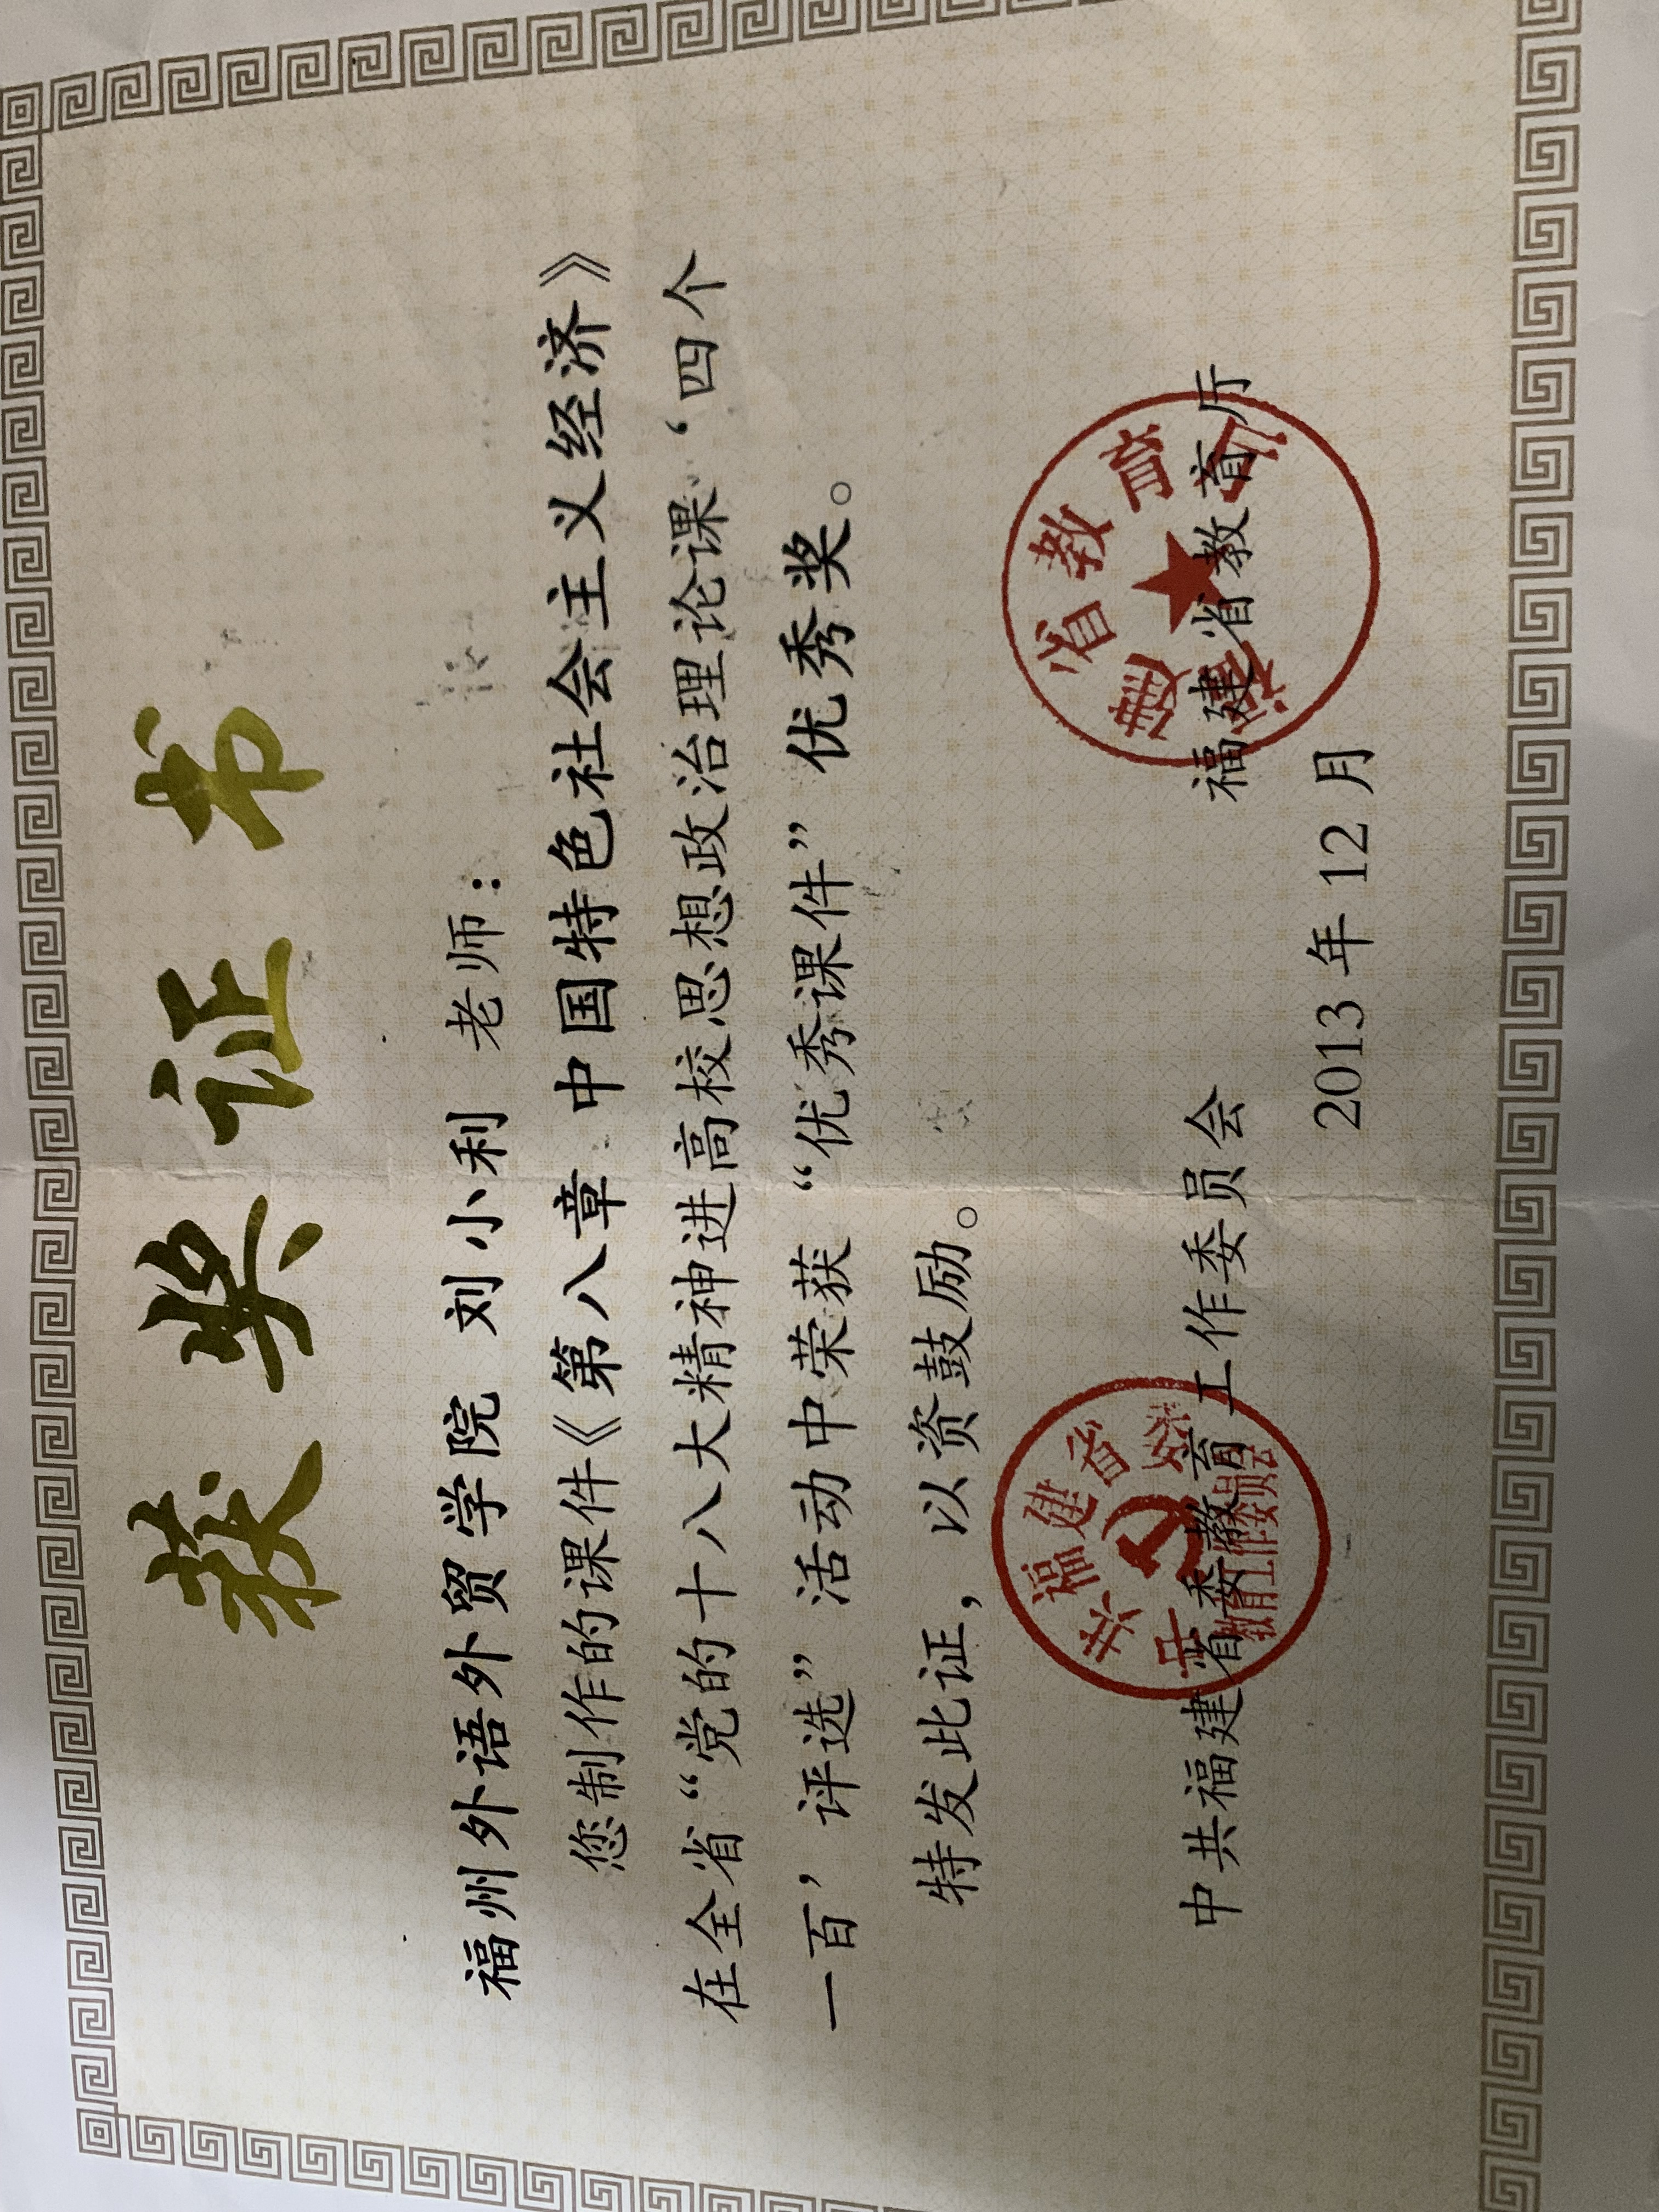 获奖证书
福州外语外贸学院 刘小利 老师：
您制作的课件《第八章 中国特色社会主义经济》
在全省“党的十八大精神进高校思想政治理论课‘四个
一百’评选”活动中荣获“优秀课件”优秀奖。
特发此证，以资鼓励。
中共福建省委教育工作委员会 福建省教育厅
2013年12月
中共福建省委
教育工作委员会
福建省教育厅